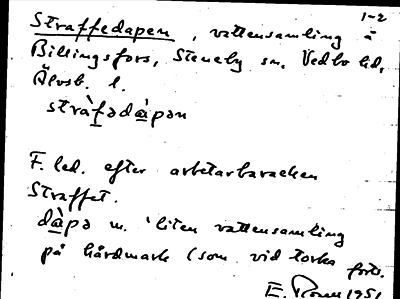 1-2
Straffedapen, vattensamling å
Billingsfors, Steneby sn, Vedbo hd,
Älvsb. l.
stràfədàpən
F. led. efter arbetarbaracken
Straffet.
dàpə m. 'liten vattensamling
på hårdmark (som vid torka forts.
E. 1951